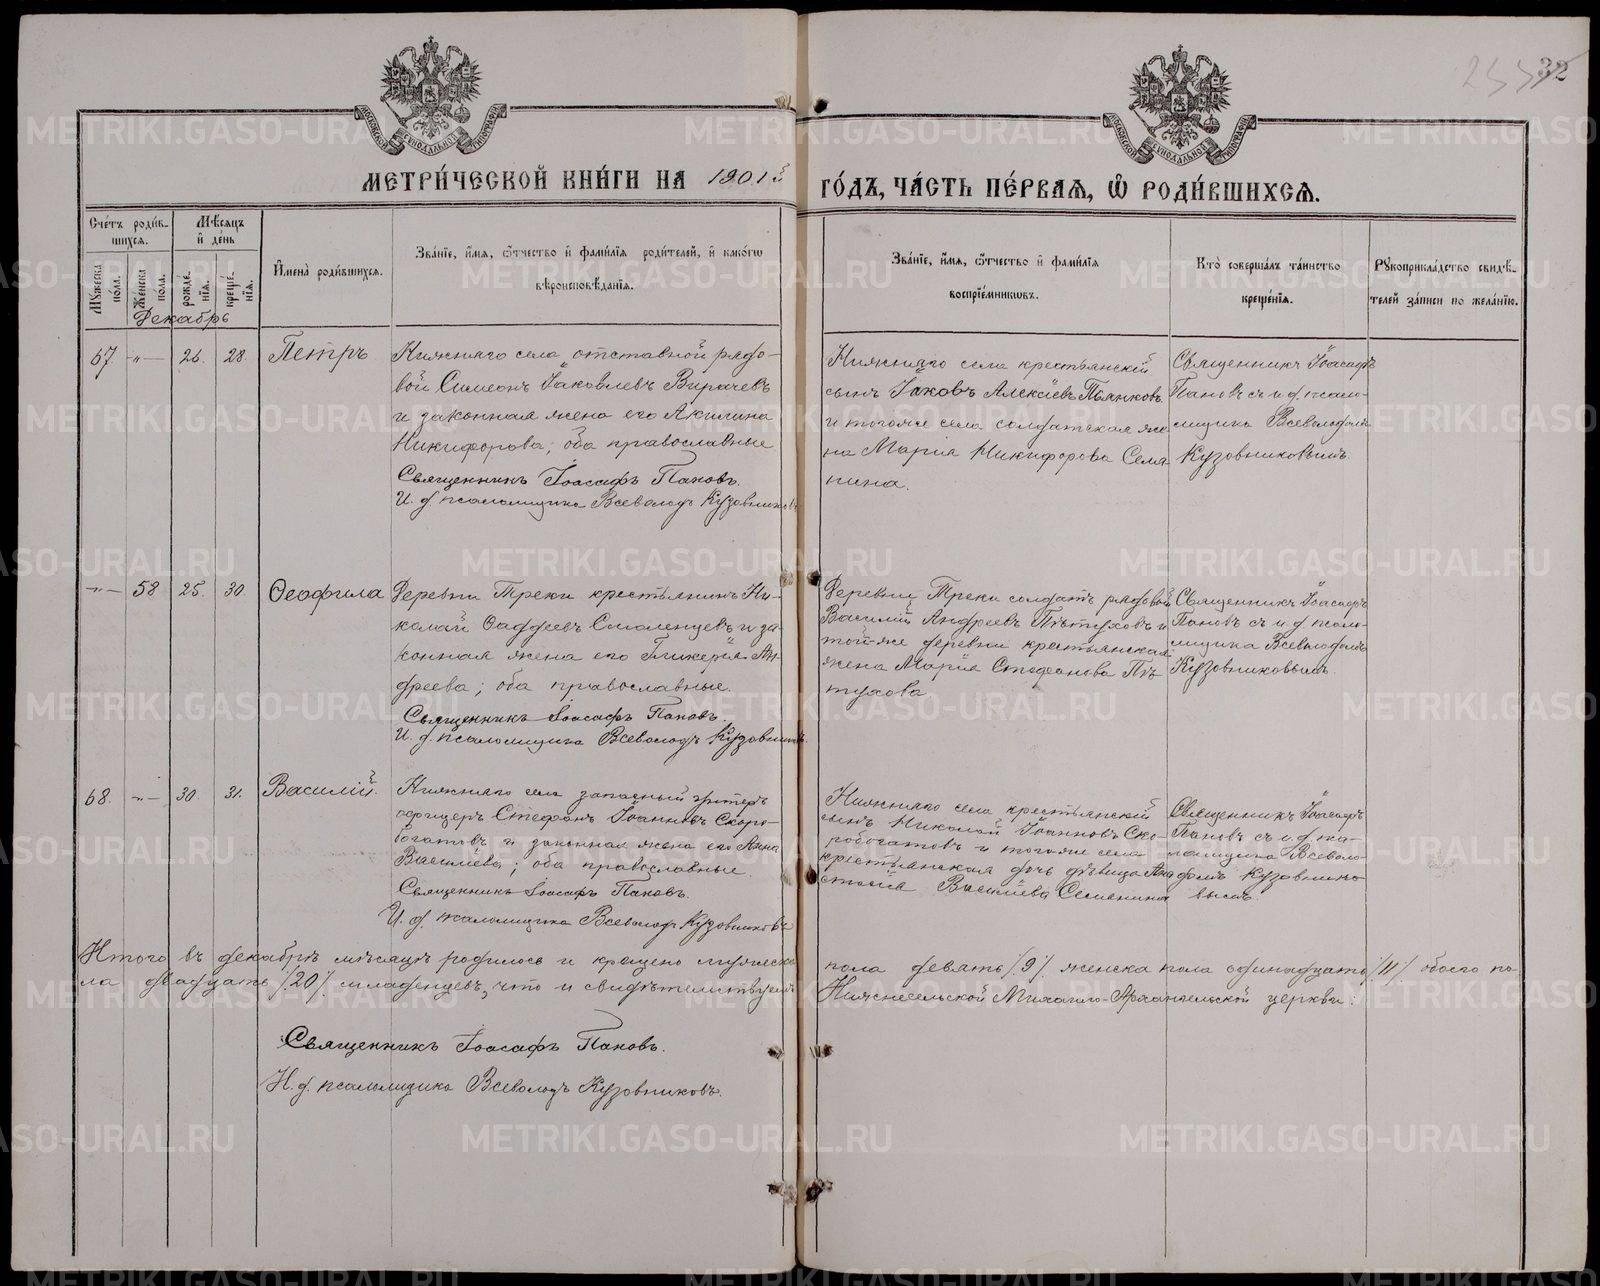 32
МОСКОВСКОЙ СѴНОДАЛЬНОЙ ТИПОГРАФІИ
МОСКОВСКОЙ СѴНОДАЛЬНОЙ ТИПОГРАФІИ
МЕТРИ́ЧЕСКОЙ КНИ́ГИ НА 1901й
ГО́ДЪ, ЧА́СТЬ ПЕ́РВАЯ, Ѡ҆ РОДИ́ВШИХСЯ.
Сче́тъ роди́в-
шихся.
Мѣ́сяцъ
и҆ де́нь
Мꙋ́жеска по́ла.
Же́нска по́ла.
рожде́нїя.
креще́нїя.
И҆мена̀ роди́вшихся.
Зва́нїе, и҆́мя, ѻ҆́тчество и҆ фами́лїя роди́телей, и҆ како́гѡ
вѣроисповѣ́данїя.
Зва́нїе, и҆́мя, ѻ҆́тчество и҆ фами́лїя
воспрїе́мникѡвъ.
Кто̀ соверша́лъ та́инство
креще́нїя.
Рꙋкоприкла́дство свидѣ́-
телей за́писи по жела́нїю.
Декабрь
67. -„- 26. 28. Петръ
Нижняго села отставной рядо-
вой Симеонъ Іаковлевъ Вирачевъ
и законная жена его Акилина
Никифорова; оба православные
Священникъ Іоасафъ Пановъ.
И. д. псаломщика Всеволодъ Кузовниковъ
Нижняго села крестьянскій
сынъ Іаковъ Алексіевъ Пьянковъ
и тогоже села солдатская же-
на Марія Никифорова Семя-
нина.
Священникъ Іоасафъ
Пановъ съ и. д. псало-
мщика Всеволодомъ
Кузовниковымъ.
-„- 58 25. 30. Ѳеофила
Деревни Треки крестьянинъ Ни-
колай Ѳаддеевъ Смоленцевъ и за-
конная жена его Гликерія Ан-
дреева; оба православные.
Священникъ Іоасафъ Пановъ.
И. д. псаломщика Всеволодъ Кузовниковъ.
Деревни Треки солдатъ рядовой
Василій Андреевъ Пѣтуховъ и
той-же деревни крестьянская
жена Марія Стефанова Пѣ-
тухова
Священникъ Іоасафъ
Пановъ съ и. д. псало-
мщика Всеволодомъ
Кузовниковымъ.
68. -„- 30. 31. Василій.
Нижняго села запасный унтеръ
офицеръ Стефанъ Іоанновъ Скоро-
богатовъ и законная жена его Анна
Василіева; оба православные.
Священникъ Іоасафъ Пановъ.
И. д. псаломщика Всеволодъ Кузовниковъ
Нижняго села крестьянскій
сынъ Николай Іоанновъ Ско-
робогатовъ и тогоже села
крестьянская дочь дѣвица Ана-
стасія Василіева Семенина
Священникъ Іоасафъ
Пановъ съ и. д. пса-
ломщика Всеволо-
домъ Кузовнико-
вымъ.
Итого въ декабрѣ мѣсяцѣ родилось и крещено мужеска
пола девять /9/ женска пола одинадцать /11/ обоего по-
ла двадцать /20/ младенцевъ, что и свидѣтельствуемъ
Нижнесельской Михаило-Архангельской церкви:
Священникъ Іоасафъ Пановъ.
И. д. псаломщика Всеволодъ Кузовниковъ.
METRIKI.GASO-URAL.RU